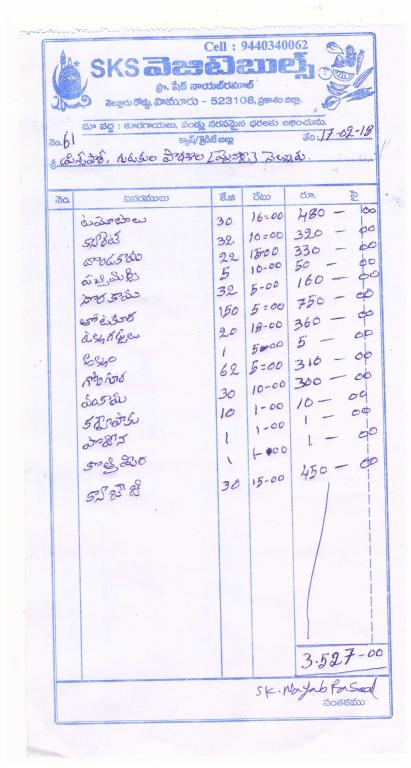 Cell : 9440340062
SKS వెజిటెబుల్స్
ప్రొ. షేక్ నాయబ్‌రసూల్
నెల్లూరు రోడ్డు, పామూరు - 523108, ప్రకాశం జిల్లా.
మా వద్ద : కూరగాయలు, పండ్లు సరసమైన ధరలకు లభించును.
నెం. 61 క్యాష్/క్రెడిట్ బిల్లు తేది : 17-02-18
శ్రీ గురుకుల పాఠశాల
నెం. వివరములు కే.జి రేటు రూ. పై
టమోటాలు 30 16=00 480 - 00
క్యారెట్ 32 10=00 320 - 00
దొండకాయ 22 15=00 330 - 00
పచ్చిమిర్చి 5 10-00 50 - 00
సొరకాయ 32 5-00 160 - 00
తోటకూర 150 5=00 750 - 00
ఉల్లిగడ్డలు 20 18-00 360 - 00
అల్లం 1 5-00 5 - 00
గోంగూర 62 5=00 310 - 00
వంకాయ 30 10-00 300 - 00
కర్వేపాకు 10 1-00 10 - 00
పొదీన 1 1-00 1 - 00
కొత్తిమీర 1 1-00 1 - 00
క్యాబేజీ 30 15-00 450 - 00
3.527-00
SK. Nayab Rasool
సంతకము